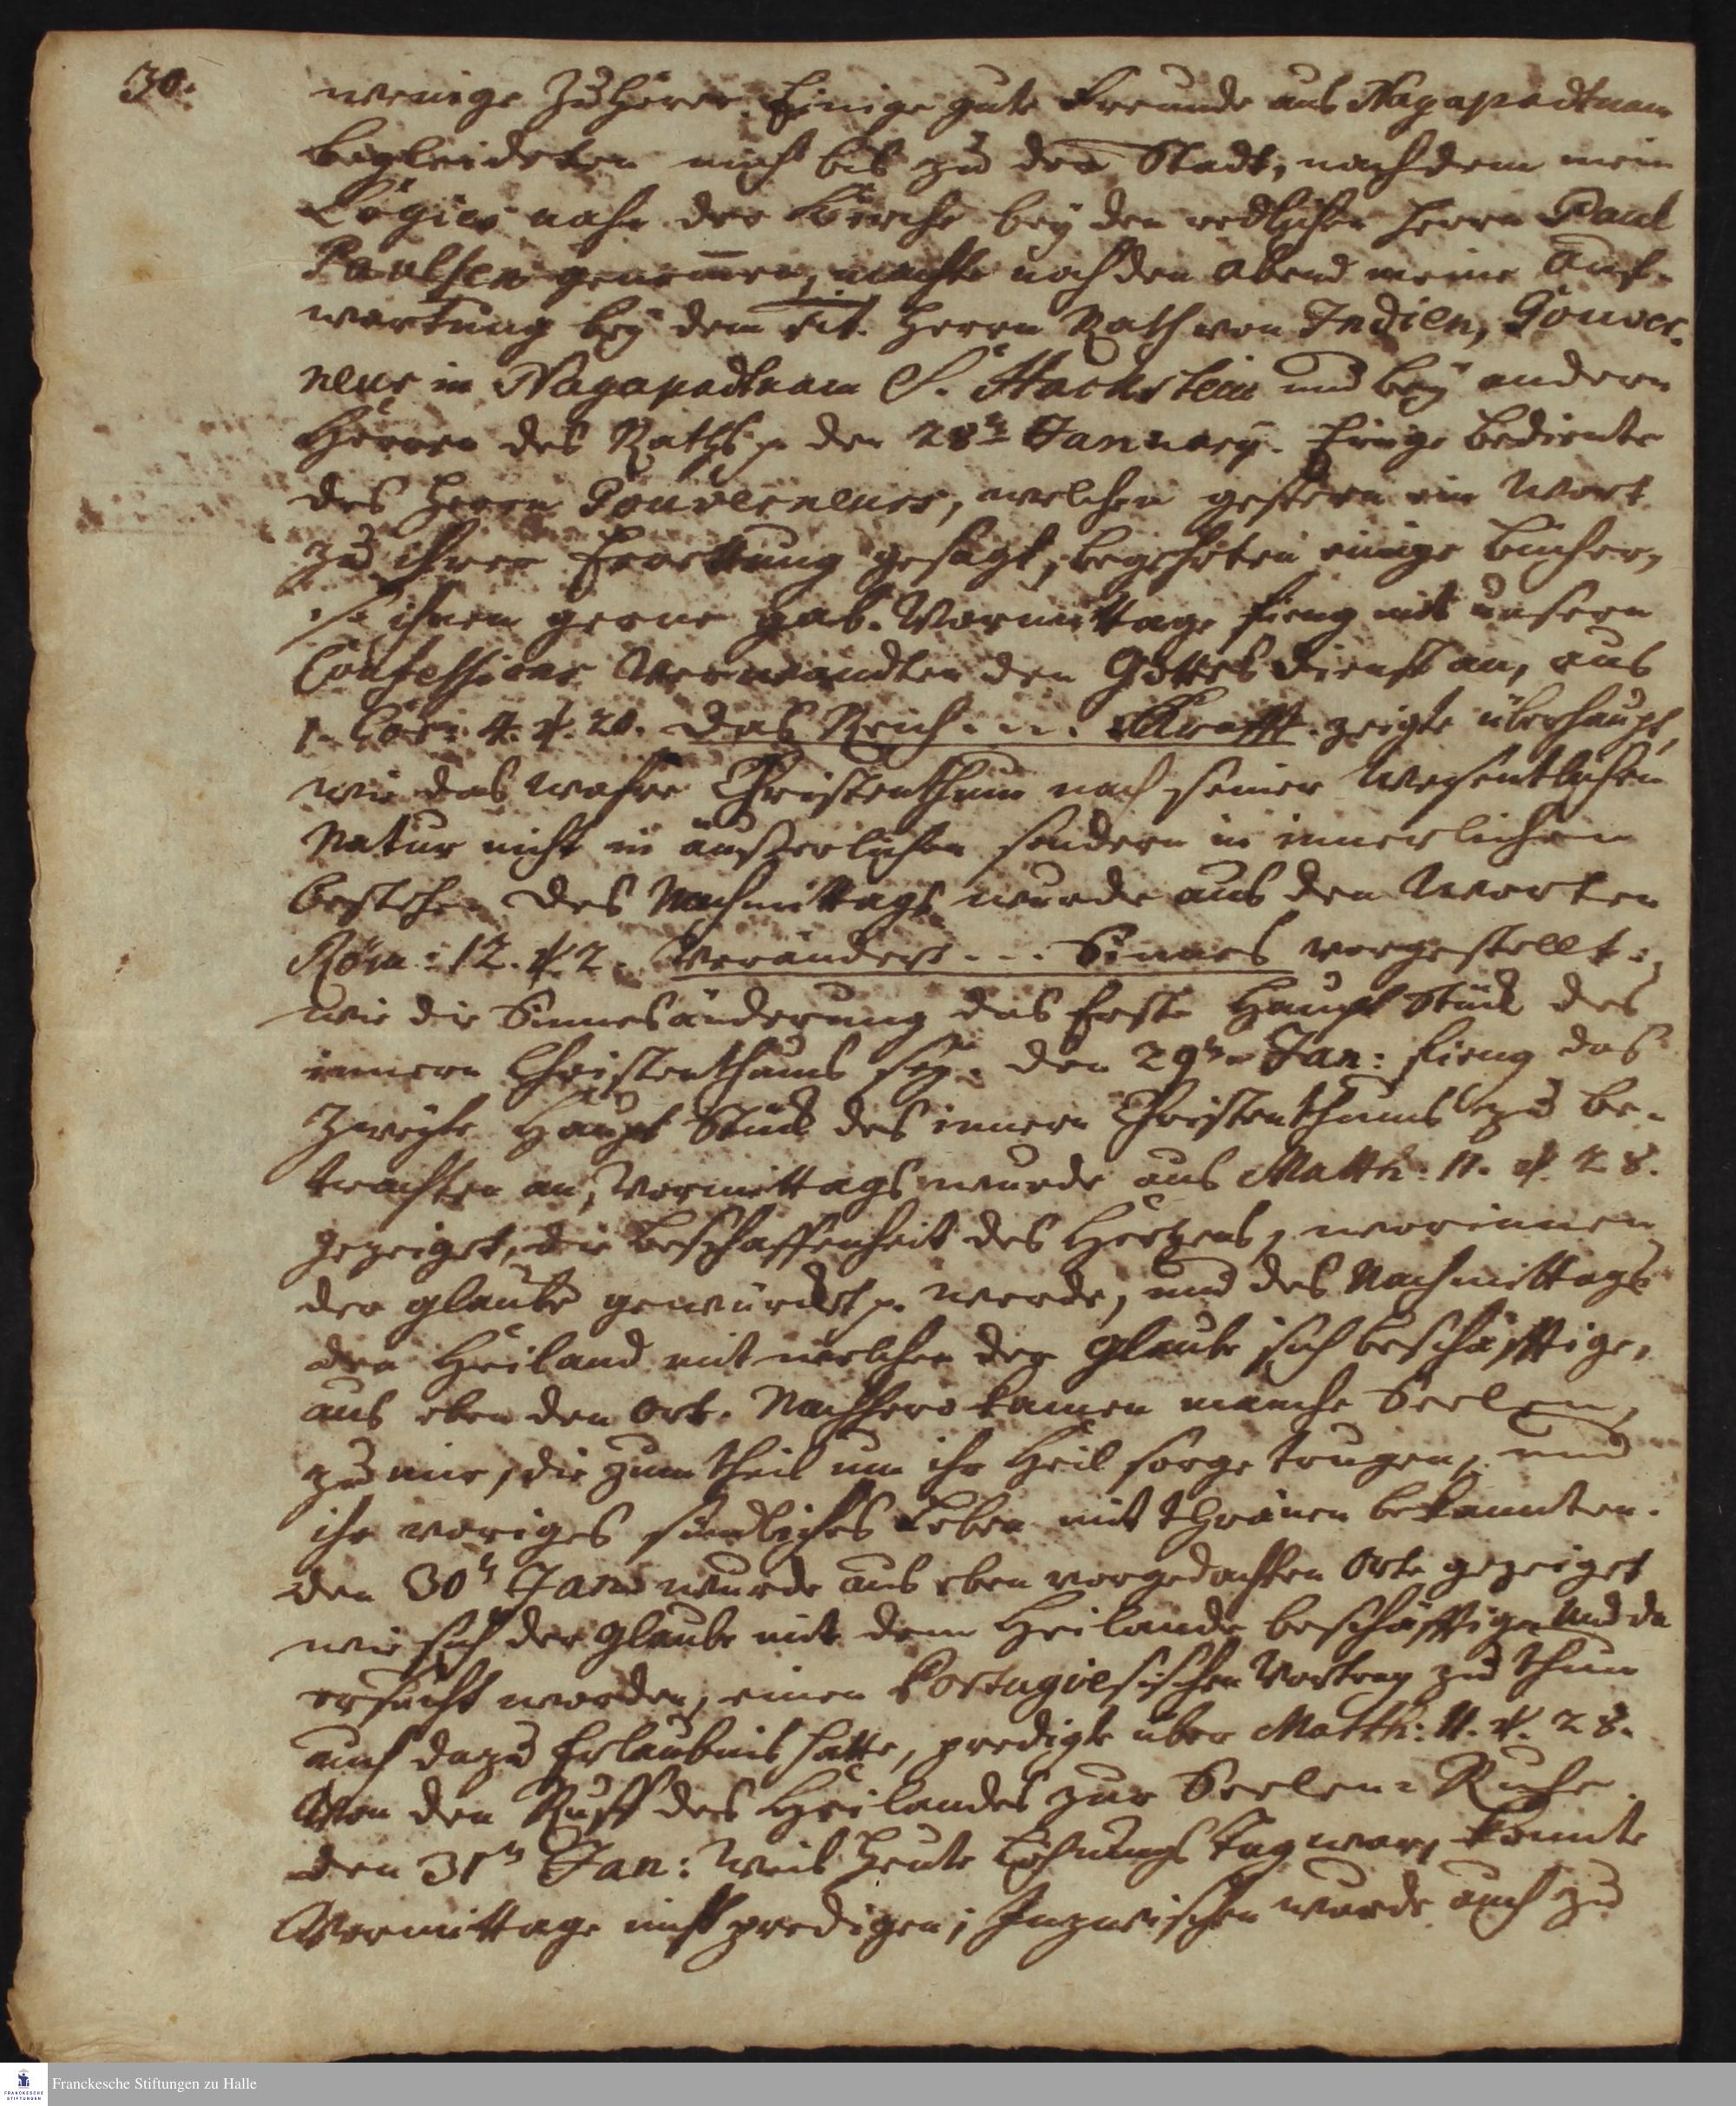 30.
wenige Zuhörer. Einige gute Freunde aus Nagapadtnam
begleideten mich bis zu der Stadt, nachdem mein
Logies nahe der Kirche bey den redlichen Herrn Paul
Paulsen genommen, machte noch den Abend meine Auf-
wartung bey dem Tit. Herrn Rath von Indien, Gouver-
neur in Nagapadtnam S. Hackstein und bey andern
Herren des Raths p. den 28t January. Einge Bediente
des Herrn Gouverneurs, welchen gestern ein Wort
zu ihrer Errettung gesagt, begehrten einige Bücher,
so ihnen gerne gab. Vormittage fieng mit unsern
Confessions Verwandten den Gottesdienst an, aus
1. Cor: 4. v. 20. das Reich. .. Krafft. zeigte überhaupt,
wie das wahre Christenthum nach seiner Wesentlichen
Natur nicht in äusserlichen sondern in innerlichen
bestehe. des Nachmittags wurde aus den Worten
Röm: 12. v. 2. Verändert - - . Sinnes vorgestellt:
wie die Sinnesänderung das Erste Haupt Stück des
innern Christenthums sey. den 29t Jan: fieng das
Zweyte Haupt Stück des innern Christenthums zu be-
trachten an, Vormittags wurde aus Matth: 11. v. 28.
gezeiget, die Beschaffenheit des Hertzens, worinnen
der Glaube gewürckt p. werde, und des Nachmittags
den Heiland mit welchen der Glaube sich beschäfftige,
aus eben den Ort. Nachhero kamen manche Seelen
zu mir, die zum theil um ihr Heil sorge trugen, und
ihr voriges sündliches Leben mit thränen bekannten.
den 30t Jan: wurde aus eben vorgedachten Orte gezeiget
wie sich der Glaube mit dem Heilande beschäfftige. Und da
ersucht worden, einen Portugiesischen Vortrag zu thun
auch dazu Erlaubnis hatte, predigte über Matth: 11. v. 28.
Von den Ruff des Heilandes zur Seelen-Ruhe.
den 31t Jan: Weil heute Löhnungs Tag war, konnte
Vormittage nicht predigen; Inzwischen wurde auch zu
Franckesche Stiftungen zu Halle
FRANCKESCHE
STIFTUNGEN